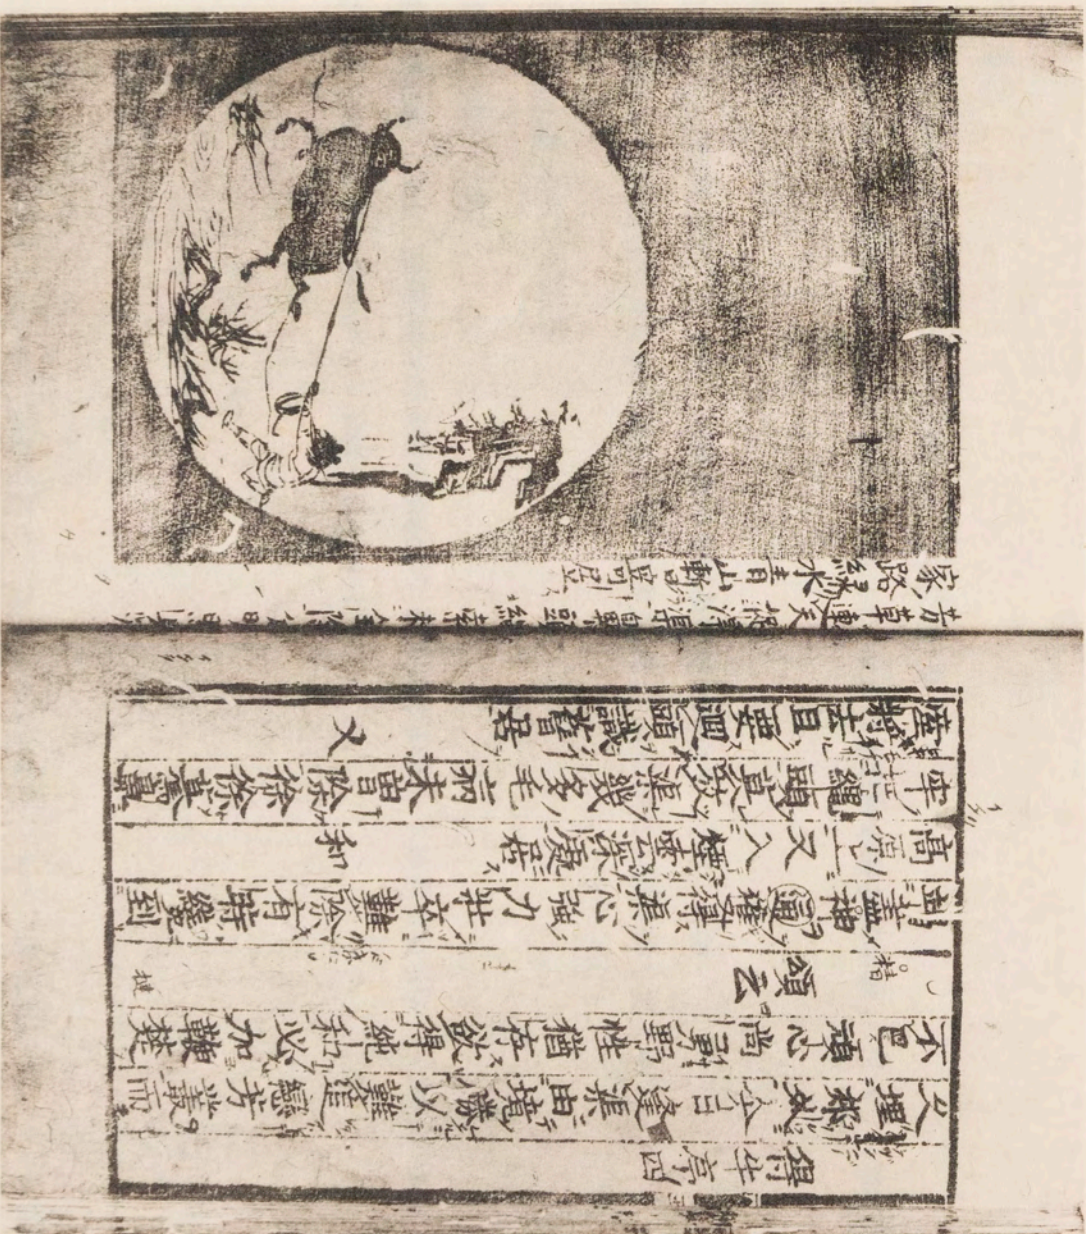 得牛序四
久埋郊外今日逢渠由境勝以難追戀芳叢而
不已頑心尚勇野性猶存欲得純和必加鞭楚
頌云
精
揵
竭盡神通獲得渠心強力壯卒難除有時纔到
高原上又入煙雲深處居 和
牢把繩頭莫放渠幾多毛病未曾除徐徐驀鼻
牽將去且要迴頭識舊居 又
芳草連天捉得渠鼻頭繩索未全除分明照見
家路綠水青山暫寄居